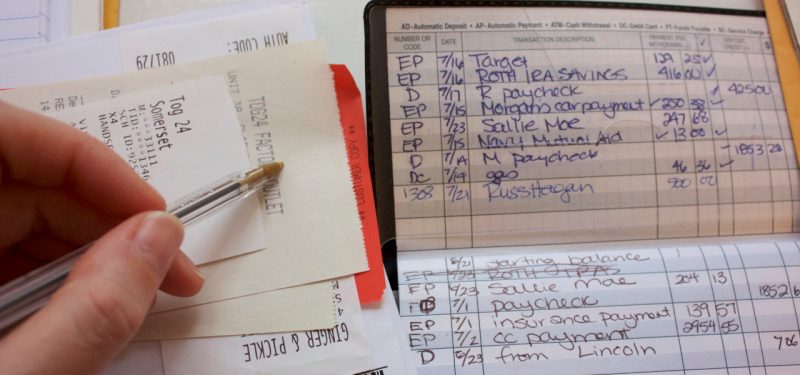 AUTH CODE:
081729
Tog 24
Somerset
M:****33111
TID:****1346
SCH ID:925
X4
HANDS
TOG24 FACTORY OUTLET
UNIT 3B
** CUSTOMER COPY **
GINGER & PICKLE
AD-Automatic Deposit • AP-Automatic Payment • ATM-Cash Withdrawal • DC-Debit Card • FT-Funds Transfer • SC-Service Charge
NUMBER OR CODE DATE TRANSACTION DESCRIPTION PAYMENT, FEE, WITHDRAWAL (-) ✓ DEPOSIT, CREDIT (+) $
EP 7/16 Target 139 25 ✓
EP 7/16 ROTH IRA SAVINGS 416 00 ✓
D 7/17 R paycheck ✓ 425 00
EP 7/15 Morgan's car payment ✓ 250 38 ✓
EP 7/23 Sallie Mae 247 68
EP 7/15 Navy Mutual Aid ✓ 13 00 ✓
D 7/19 M paycheck ✓ 1853 28
DC 7/19 gas 46 36 ✓
1308 7/21 Russ Hagan 500 00
6/21 starting balance
EP 6/23 ROTH IRAS
EP 6/23 Sallie Mae 204 13
D 7/1 paycheck 1852 6
EP 7/1 insurance payment 139 57
EP 7/2 cc payment 2954 55
D 6/23 from Lincoln 706